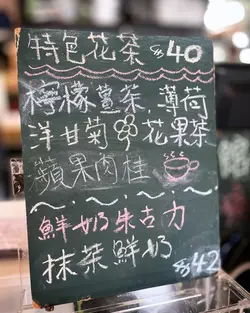 特色花茶 $40
檸檬薑茶,薄荷
洋甘菊 花果茶
蘋果肉桂
鮮奶朱古力
抹茶鮮奶 $42